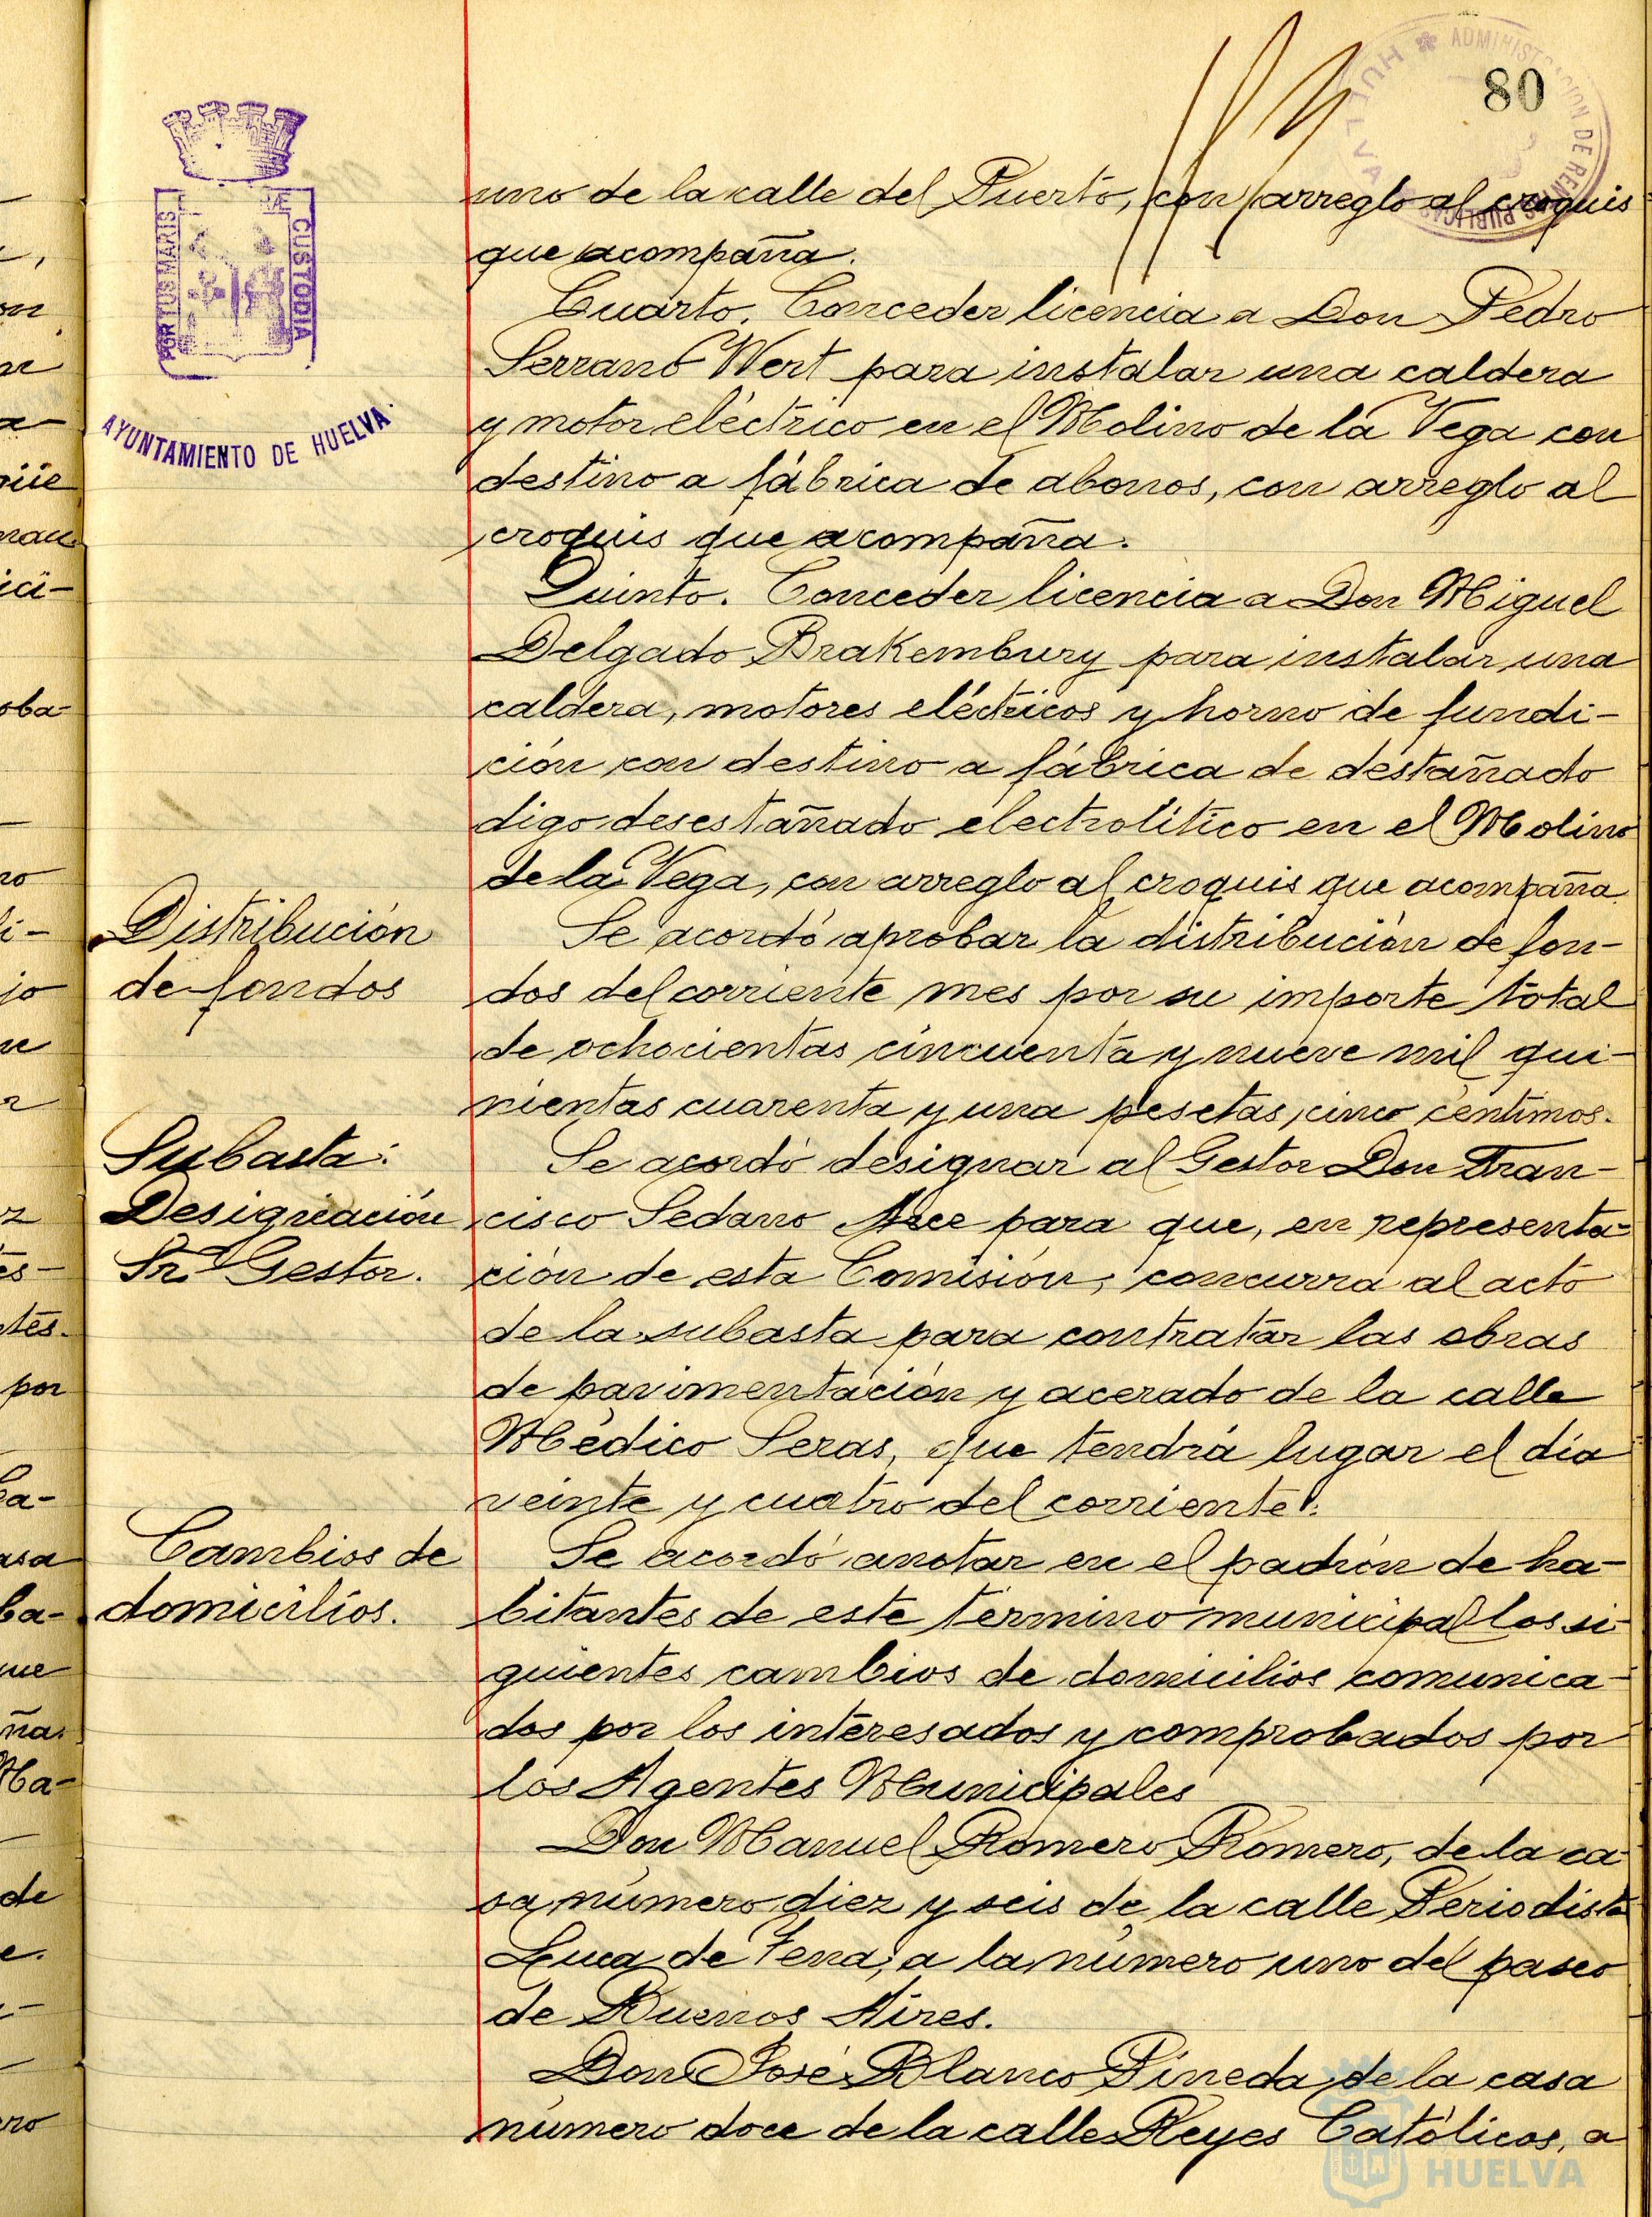 80
ADMINISTRACION DE RENTAS PUBLICAS
HUELVA
PORTUS MARIS
CUSTODIA
AYUNTAMIENTO DE HUELVA
uno de la calle del Puerto, con arreglo al croquis
que acompaña.
Cuarto. Conceder licencia a Don Pedro
Serrano Wert para instalar una caldera
y motor eléctrico en el Molino de la Vega con
destino a fábrica de abonos, con arreglo al
croquis que acompaña.
Quinto. Conceder licencia a Don Miguel
Delgado Brakembury para instalar una
caldera, motores eléctricos y horno de fundi-
ción con destino a fábrica de destañado
digo desestañado electrolítico en el Molino
de la Vega, con arreglo al croquis que acompaña.
Distribución
de fondos
Se acordó aprobar la distribución de fon-
dos del corriente mes por su importe total
de ochocientas cincuenta y nueve mil qui-
nientas cuarenta y una pesetas, cinco céntimos.
Subasta:
Designación
Sr. Gestor.
Se acordó designar al Gestor Don Fran-
cisco Sedano Arce para que, en representa-
ción de esta Comisión, concurra al acto
de la subasta para contratar las obras
de pavimentación y acerado de la calle
Médico Seras, que tendrá lugar el día
veinte y cuatro del corriente.
Cambios de
domicilios.
Se acordó anotar en el padrón de ha-
bitantes de este término municipal los si-
guientes cambios de domicilios comunica-
dos por los interesados y comprobados por
los Agentes Municipales
Don Manuel Romero Romero, de la ca-
sa número diez y seis de la calle Periodista
Luca de Tena, a la número uno del paseo
de Buenos Aires.
Don José Blanco Pineda, de la casa
número doce de la calle Reyes Católicos, a
HUELVA